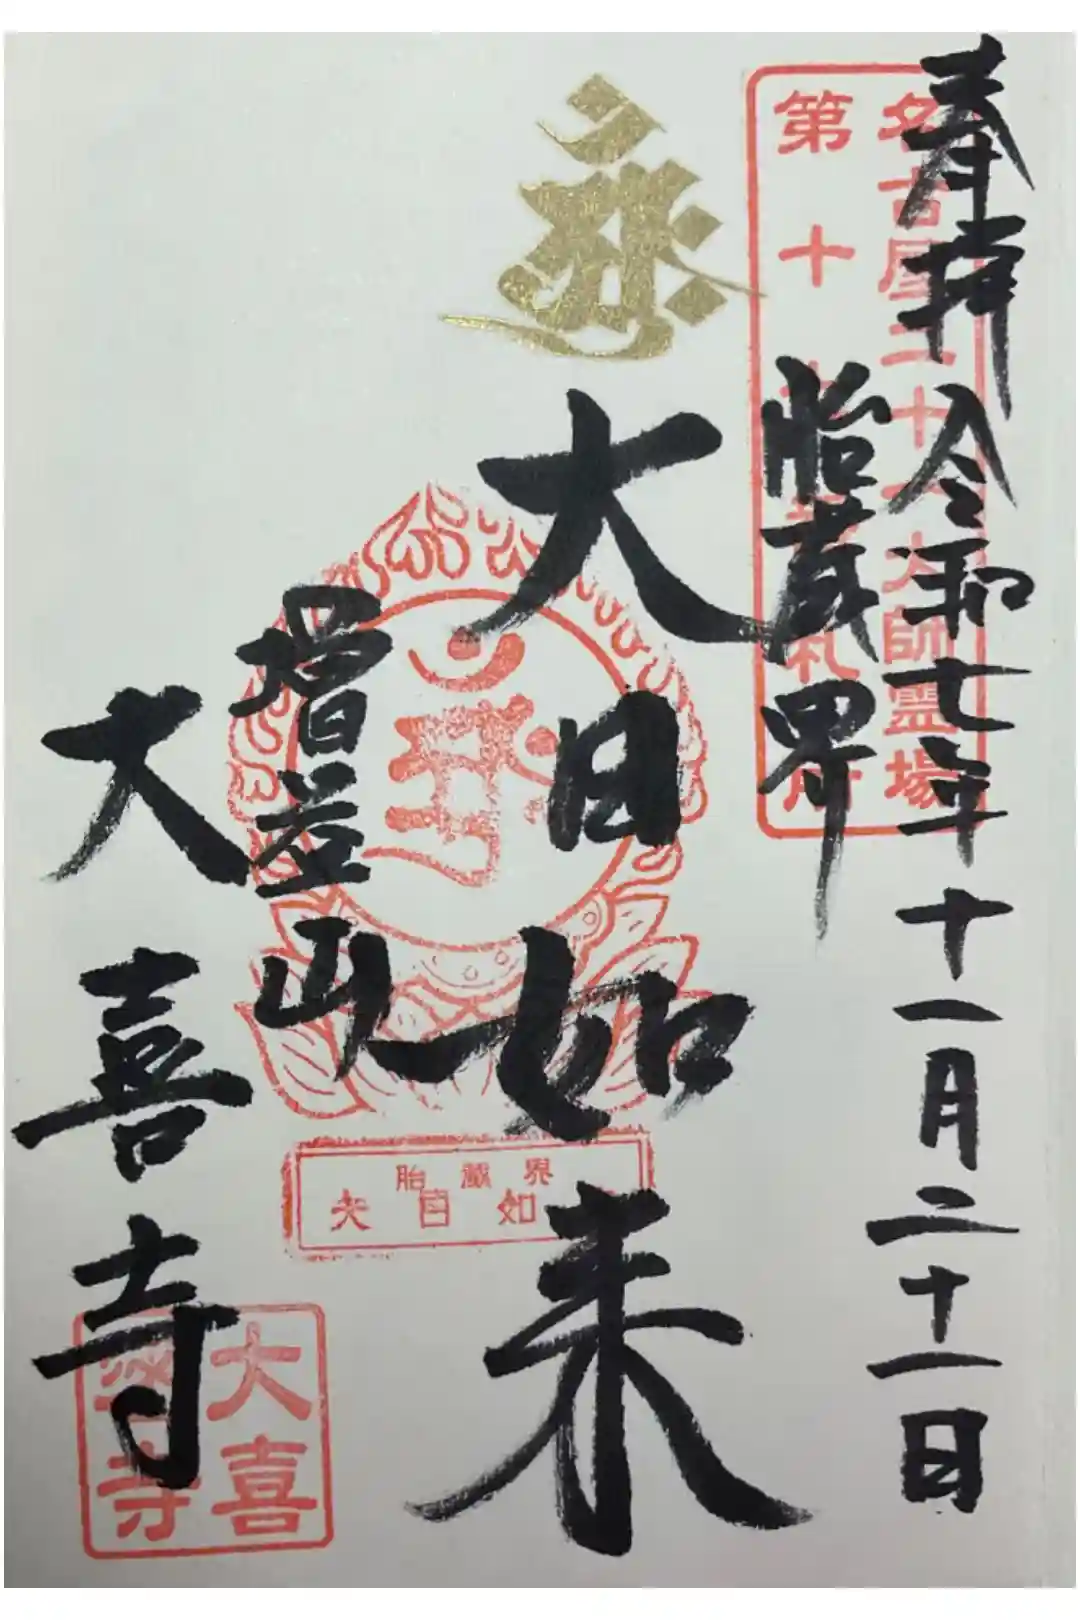 奉拝 令和七年十一月二十一日
名古屋二十一大師霊場
第十
札所
胎蔵界
大日如来
増益山
大喜寺
胎蔵界
大日如
大喜
寺